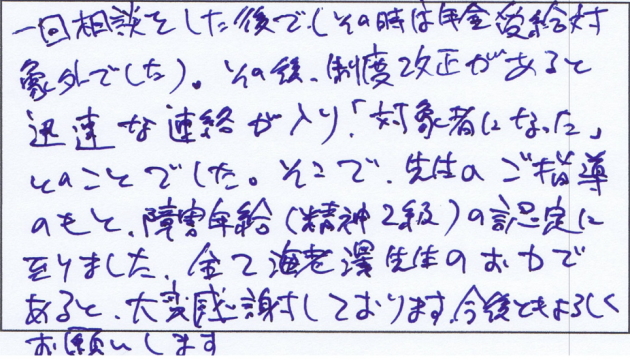 一回相談をした後で(その時は年金受給対
象外でした)。その後、制度改正があると
迅速な連絡が入り、「対象者になった」
とのことでした。そこで、先生のご指導
のもと、障害年給(精神2級)の認定に
至りました。全て海老澤先生のお力で
あると、大変感謝しております。今後ともよろしく
お願いします